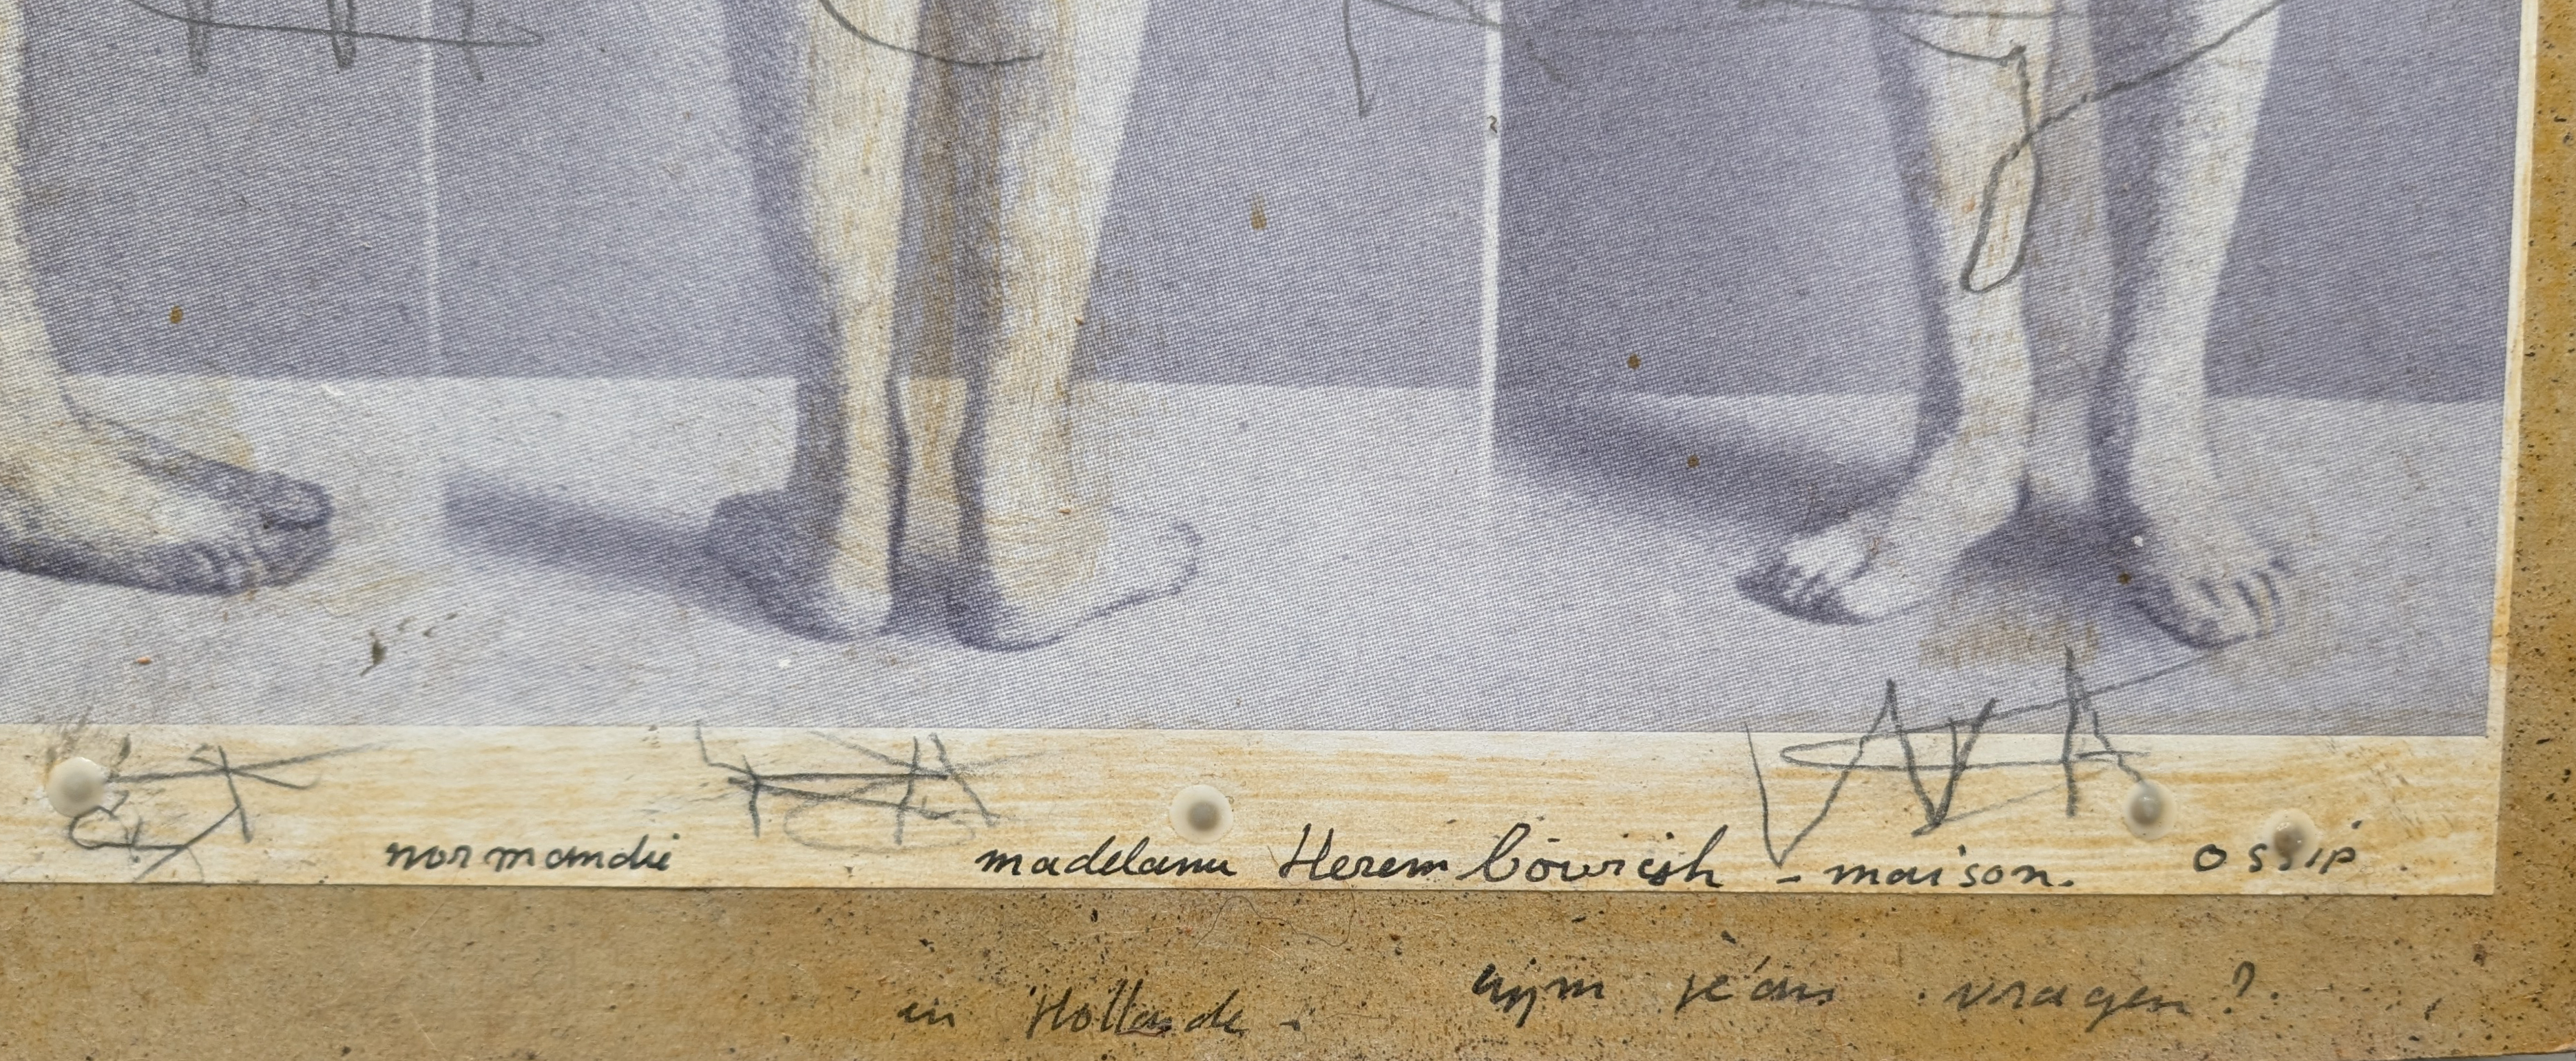 normandie madelanu Herem bowish - maison. ossip
in Hollande - wym jéans vragen ?